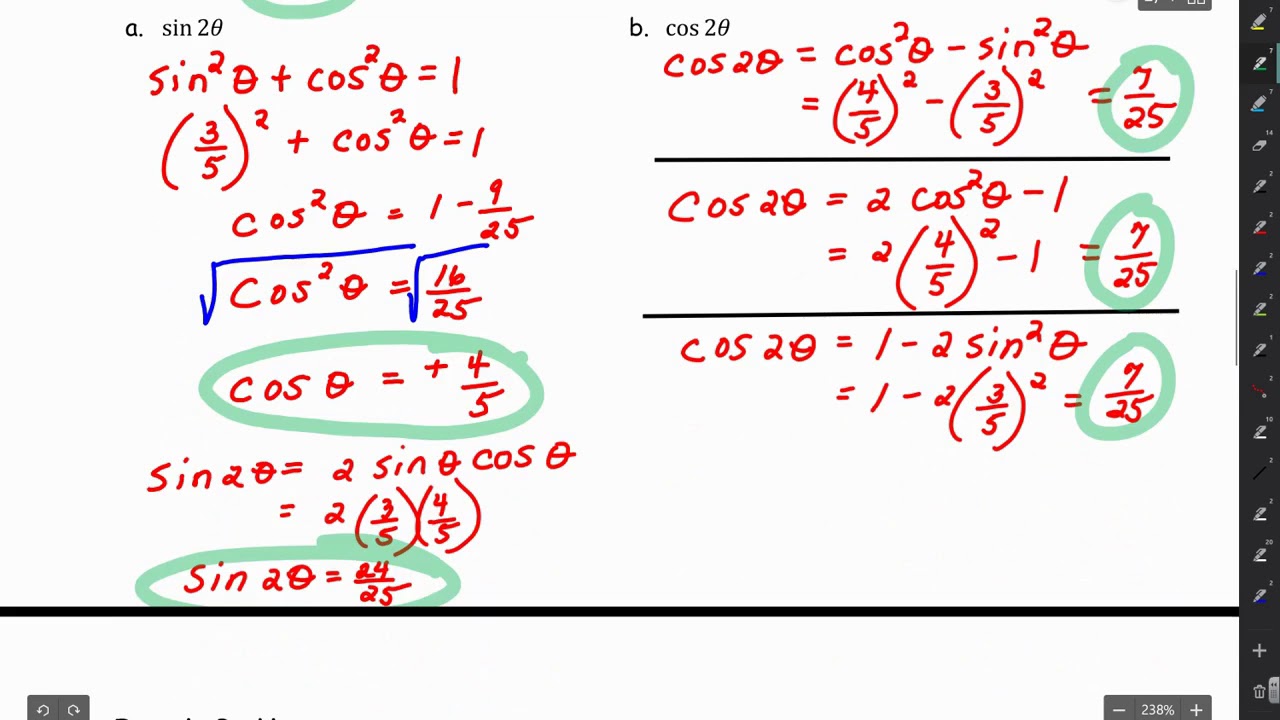 a. sin 2θ
sin²θ + cos²θ = 1
(3/5)² + cos²θ = 1
cos²θ = 1 - 9/25
√cos²θ = √16/25
cos θ = + 4/5
sin 2θ = 2 sin θ cos θ
= 2 (3/5)(4/5)
sin 2θ = 24/25
b. cos 2θ
cos 2θ = cos²θ - sin²θ
= (4/5)² - (3/5)² = 7/25
cos 2θ = 2 cos²θ - 1
= 2 (4/5)² - 1 = 7/25
cos 2θ = 1 - 2 sin²θ
= 1 - 2 (3/5)² = 7/25
238%